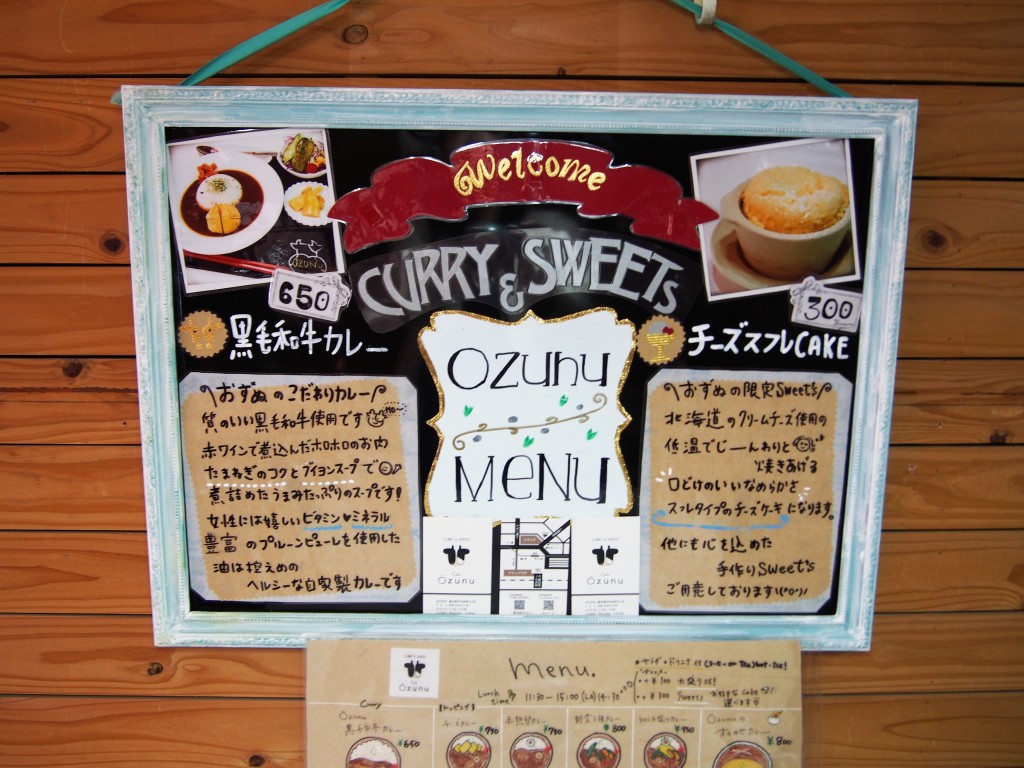 Welcome
CURRY & SWEETS
OZUNU
650
300
黒毛和牛カレー
チーズスフレCAKE
Ozunu
MENU
おずぬのこだわりカレー
質のいい黒毛和牛使用です
赤ワインで煮込んだホロホロのお肉
たまねぎのコクとブイヨンスープで
煮詰めたうまみたっぷりのスープです!
女性には嬉しいビタミン♥ミネラル
豊富のプルーンピューレを使用した
油は控えめの
ヘルシーな自家製カレーです
おずぬの限定Sweet's
北海道のクリームチーズ使用の
低温でじーんわりと
焼きあげる
口どけのいいなめらかな
スフレタイプのチーズケーキになります。
他にも心を込めた
手作りSweet's
ご用意しております!(^o^)/
CURRY & SWEETS
Cafe
Ozunu
CURRY & SWEETS
Cafe
Ozunu
CURRY & SWEETS
Cafe
Ozunu
Menu.
Lunch time 11:30-15:00 (Lo)14:30
¥100 大盛りOK!
¥300 Sweets
Curry
トッピング
Ozunu
黒毛和牛カレー
¥650
チーズカレー
¥750
半熟卵カレー
¥750
野菜3種カレー
¥800
¥950
Ozunuの
¥800